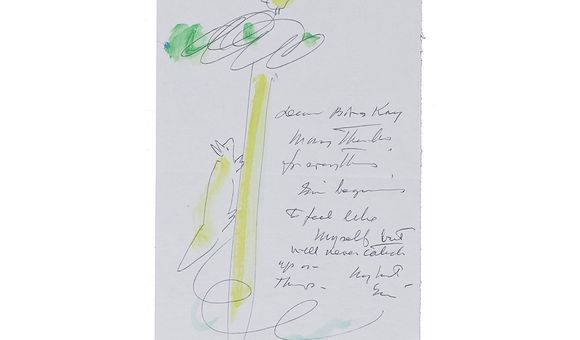 Dear Kay
Many Thanks
for everything
beginning
I feel like
Myself but
will never catch
up on
Things - My best